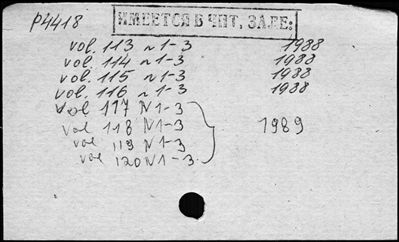 P4418
ИМЕЕТСЯ В ЧИТ. ЗАЛЕ:
vol. 113 N 1-3 1988
vol. 114 N 1-3 1988
vol. 115 N 1-3 1988
vol. 116 N 1-3 1988
vol 117 N 1-3
vol 118 N 1-3 1989
vol 119 N 1-3
vol 120 N 1-3